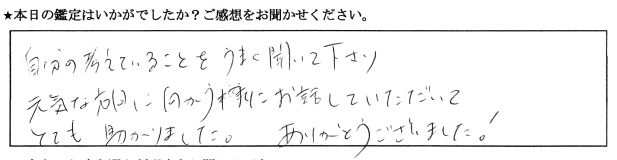 ★本日の鑑定はいかがでしたか？ご感想をお聞かせください。
自分の考えていることをうまく聞いて下さり
元気な方向に向かう様にお話していただいて
とても助かりました。 ありがとうございました！